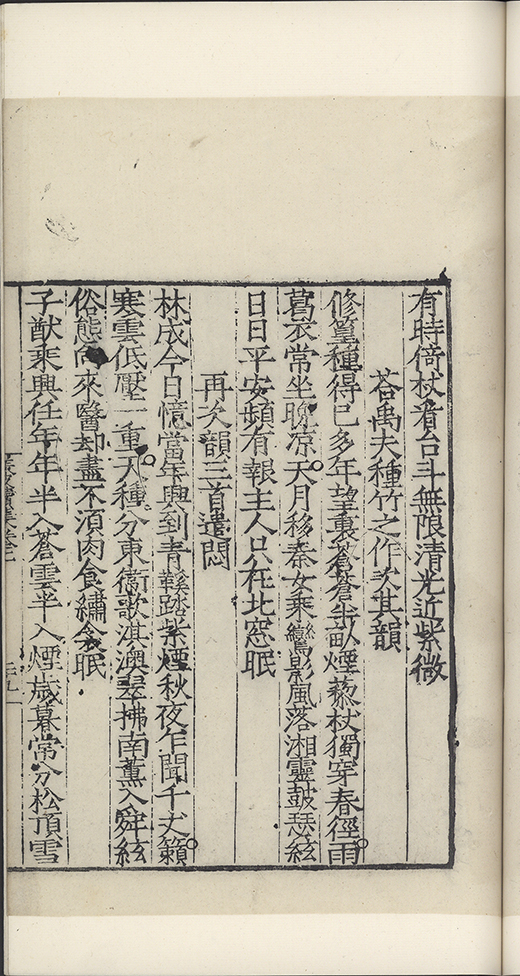 有時倚杖看台斗無限清光近紫微
荅禹夫種竹之作次其韻
修篁種得已多年望裏蒼蒼半畝煙藜杖獨穿春徑雨
葛衣常坐晚凉天月移秦女乘鸞影風落湘靈鼓瑟絃
日日平安頻有報主人只在北窓眠
再次韻三首遣悶
林成今日憶當年興到青鞵踏紫煙秋夜乍聞千丈籟
寒雲低壓一重天種分東衛歌淇澳翠拂南薫入舜絃
俗態向來醫却盡不湏肉食繡衾眠
子猷乘興任年年半入蒼雲半入煙歳暮常分松頂雪